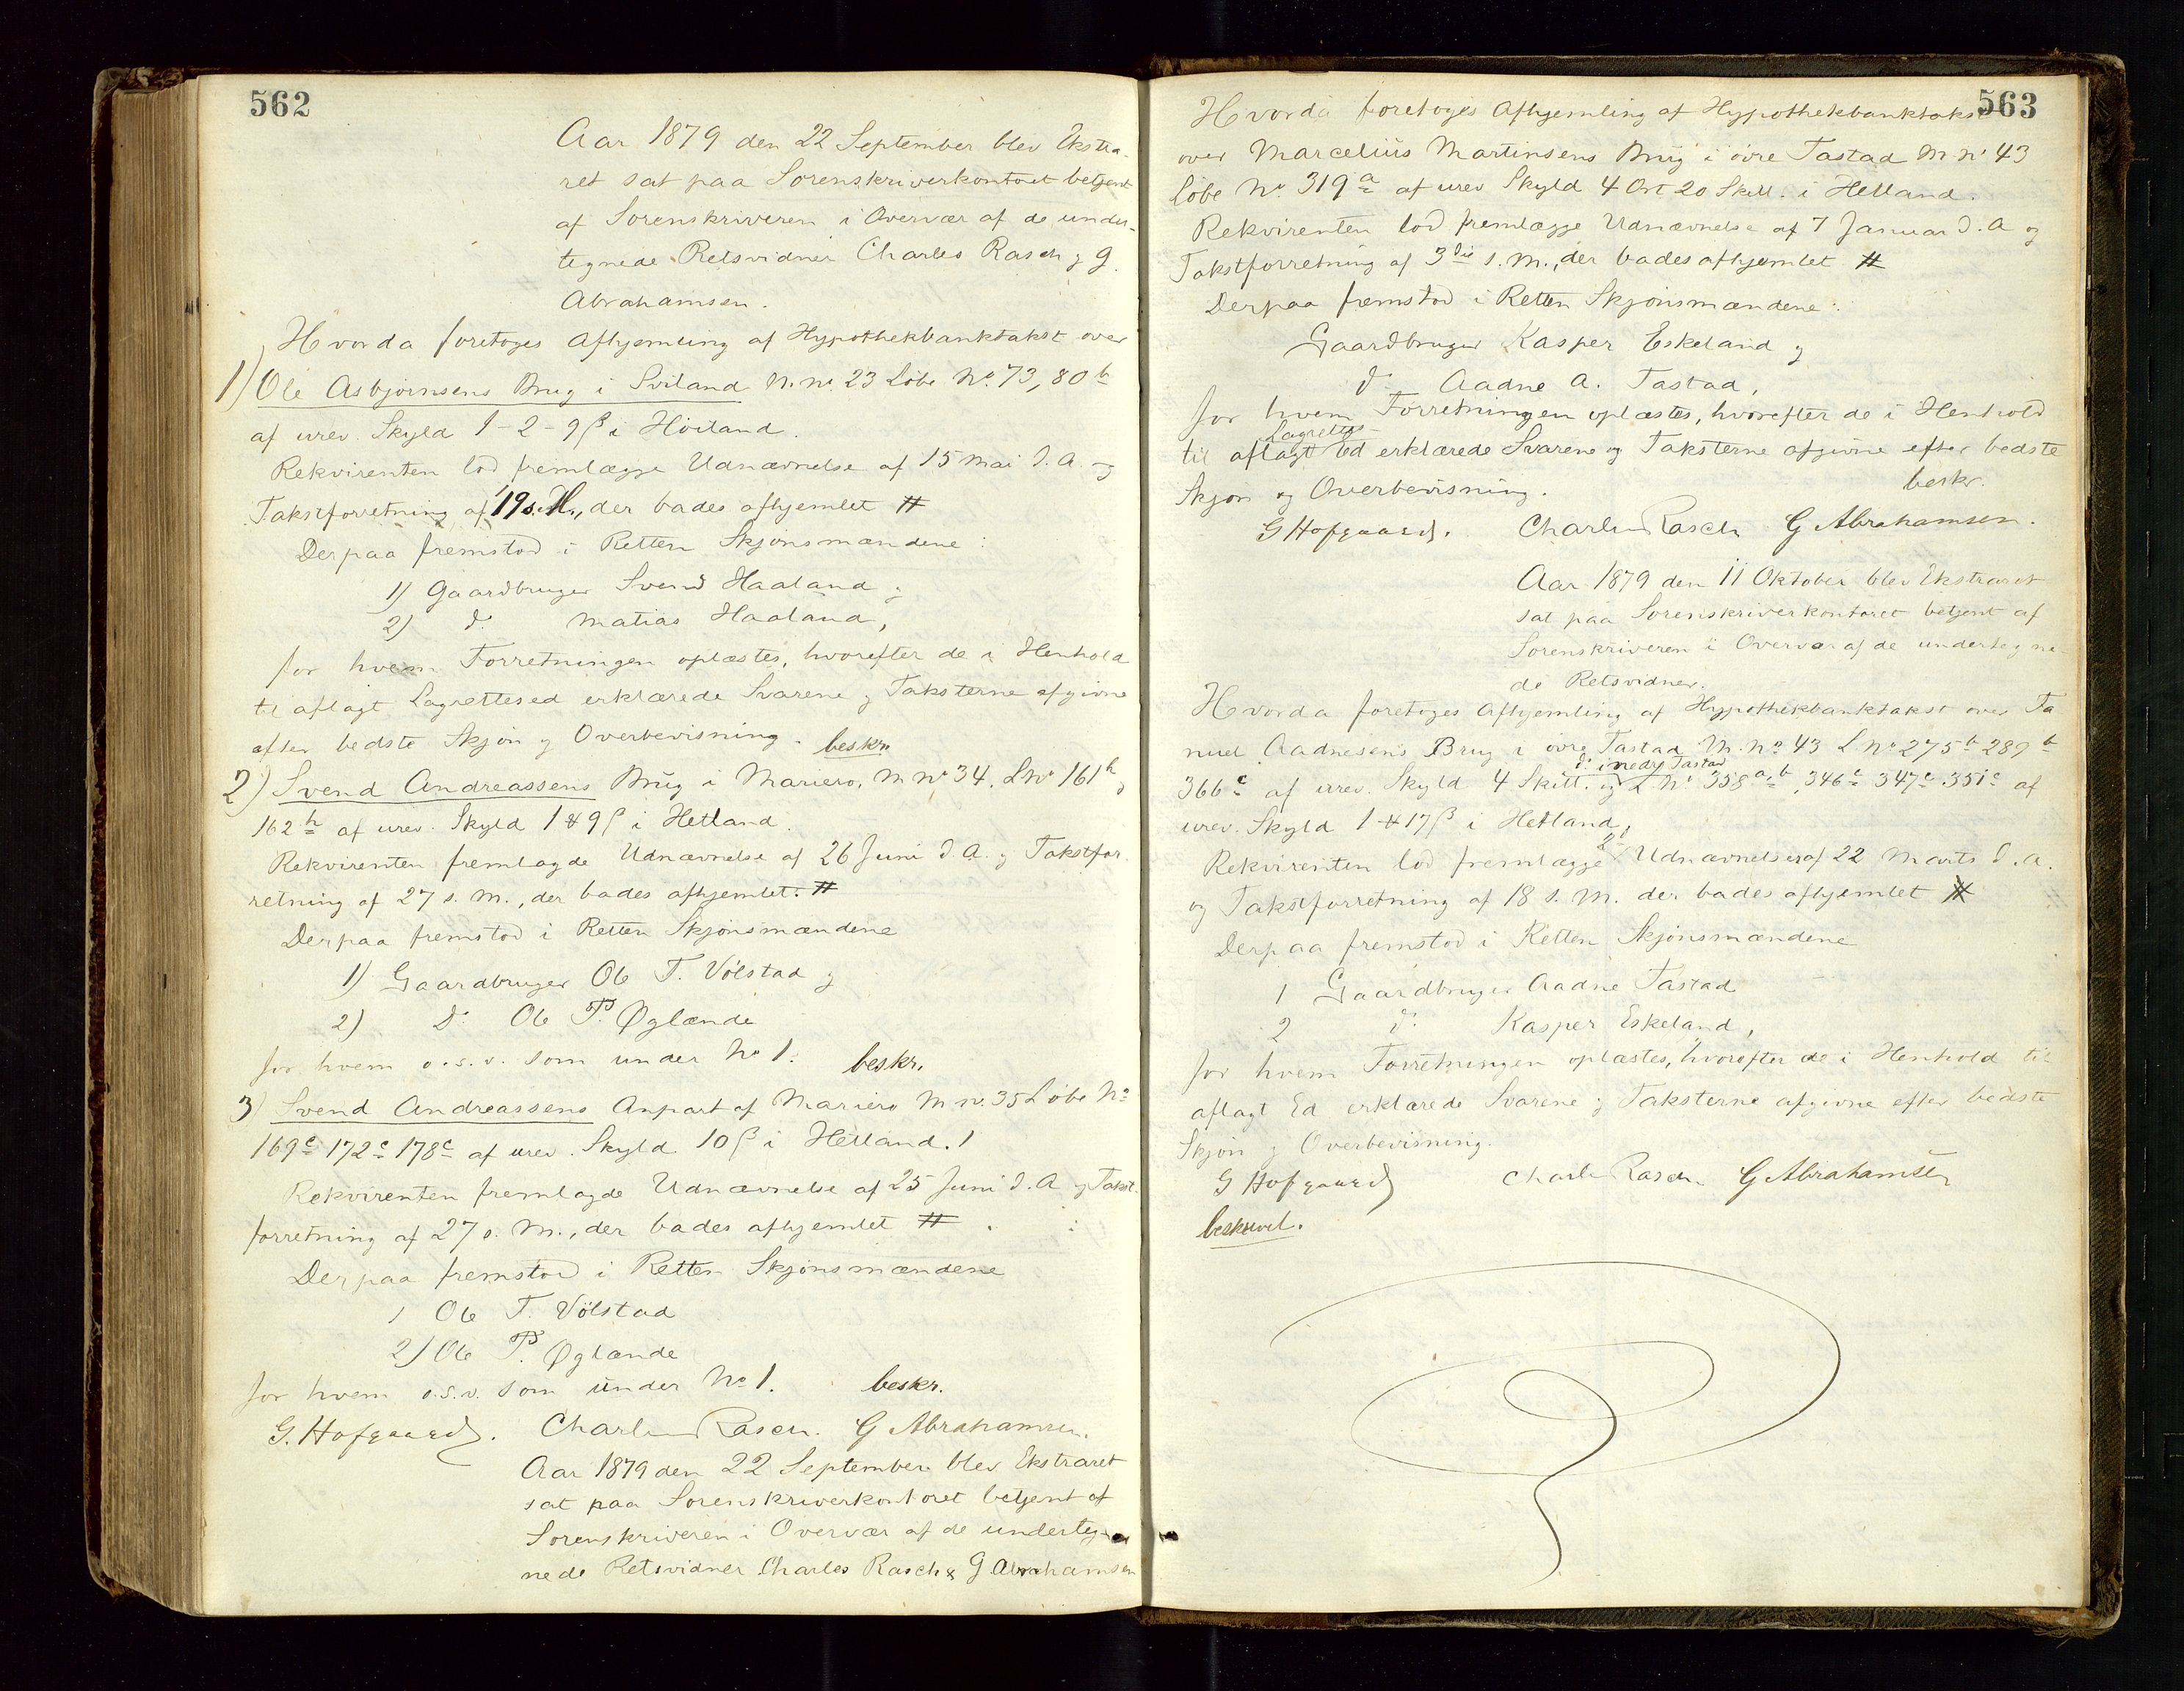 562
Aar 1879 den 22 September blev Ekstra-
ret sat paa Sorenskriverkontoret betjent
af Sorenskriveren i Overvær af de under-
tegnede Retsvidner Charles Rasch og G.
Abrahamsen.
Hvorda foretoges Afhjemling af Hypothekbanktakst over
1) Ole Asbjørnsens Brug i Sviland M. no 23 Løbe No. 73, 80 b
af urev. Skyld 1-2-9 β i Høiland.
Rekvirenten lod fremlægge Udnævnelse af 15 Mai d. A. og
Takstforretning af 19 s. M., der bades afhjemlet #
Derpaa fremstod i Retten Skjønsmændene:
1) Gaardbruger Svend Haaland og
2) do Matias Haaland,
for hvem Forretningen oplæstes, hvorefter de i Henhold
til aflagt Lagrettesed erklærede Svarene og Taksterne afgivne
efter bedste Skjøn og Overbevisning. beskr.
2) Svend Andreassens Brug i Mariero, M no 34, L no 161 h og
162 h af urev. Skyld 1 # 9 β i Hetland.
Rekvirenten fremlagde Udnævnelse af 26 Juni d. A. og Takstfor-
retning af 27 s. M., der bades afhjemlet. #
Derpaa fremstod i Retten Skjønsmændene
1) Gaardbruger Ole T. Vølstad og
2) Do Ole P. Øglænde
for hvem o.s.v. som under No 1. beskr.
3) Svend Andreassens Anpart af Mariero M no. 35 Løbe No
169 c 172 c 178 c af urev. Skyld 10 β i Hetland. 1
Rekvirenten fremlagde Udnævnelse af 25 Juni d. A og Takst-
forretning af 27 s. M., der bades afhjemlet #
Derpaa fremstod i Retten Skjønsmændene
1 Ole T. Vølstad
2) Ole P. Øglænde
for hvem o.s.v. som under No 1. beskr.
G. Hofgaard. Charles Rasch. G Abrahamsen.
Aar 1879 den 22 September blev Ekstraret
sat paa Sorenskriverkontoret betjent af
Sorenskriveren i Overvær af de underteg-
nede Retsvidner Charles Rasch & G Abrahamsen
563
Hvorda foretoges Afhjemling af Hypothekbanktakst
over Marcelius Martinsens Brug i øvre Tastad M no 43
Løbe No. 319 a af urev Skyld 4 Ort 20 Skill. i Hetland.
Rekvirenten lod fremlægge Udnævnelse af 7 Januar d. A og
Takstforretning af 3die s. M., der bades afhjemlet #
Derpaa fremstod i Retten Skjønsmændene:
Gaardbruger Kasper Eskeland og
do Aadne A. Tastad,
for hvem Forretningen oplæstes, hvorefter de i Henhold
Lagrettes-
til aflagt Ed erklærede Svarene og Taksterne afgivne efter bedste
Skjøn og Overbevisning. beskr.
G Hofgaard. Charles Rasch G Abrahamsen.
Aar 1879 den 11 Oktober blev Ekstraret
sat paa Sorenskriverkontoret betjent af
Sorenskriveren i Overvær af de undertegne-
de Retsvidner.
Hvorda foretoges Afhjemling af Hypothekbanktakst over Ta
nuel Aadnesens Brug i øvre Tastad M. no 43 L. no 275 b 289 b
do i nedre Tastad
366 c af urev. Skyld 4 Skill. og L No 358 a, b, 346 c 347 c 351 c af
urev. Skyld 1 # 17 β i Hetland,
2
Rekvirenten lod fremlægge Udnævnelser af 22 Marts d. A.
og Takstforretning af 18 s. M. der bades afhjemlet #
Derpaa fremstod i Retten Skjønsmændene
1 Gaardbruger Aadne Tastad
2 do Kasper Eskeland,
for hvem Forretningen oplæstes, hvorefter de i Henhold til
aflagt Ed erklærede Svarene og Taksterne afgivne efter bedste
Skjøn og Overbevisning.
G Hofgaard Charles Rasch. G Abrahamsen
beskrevet.